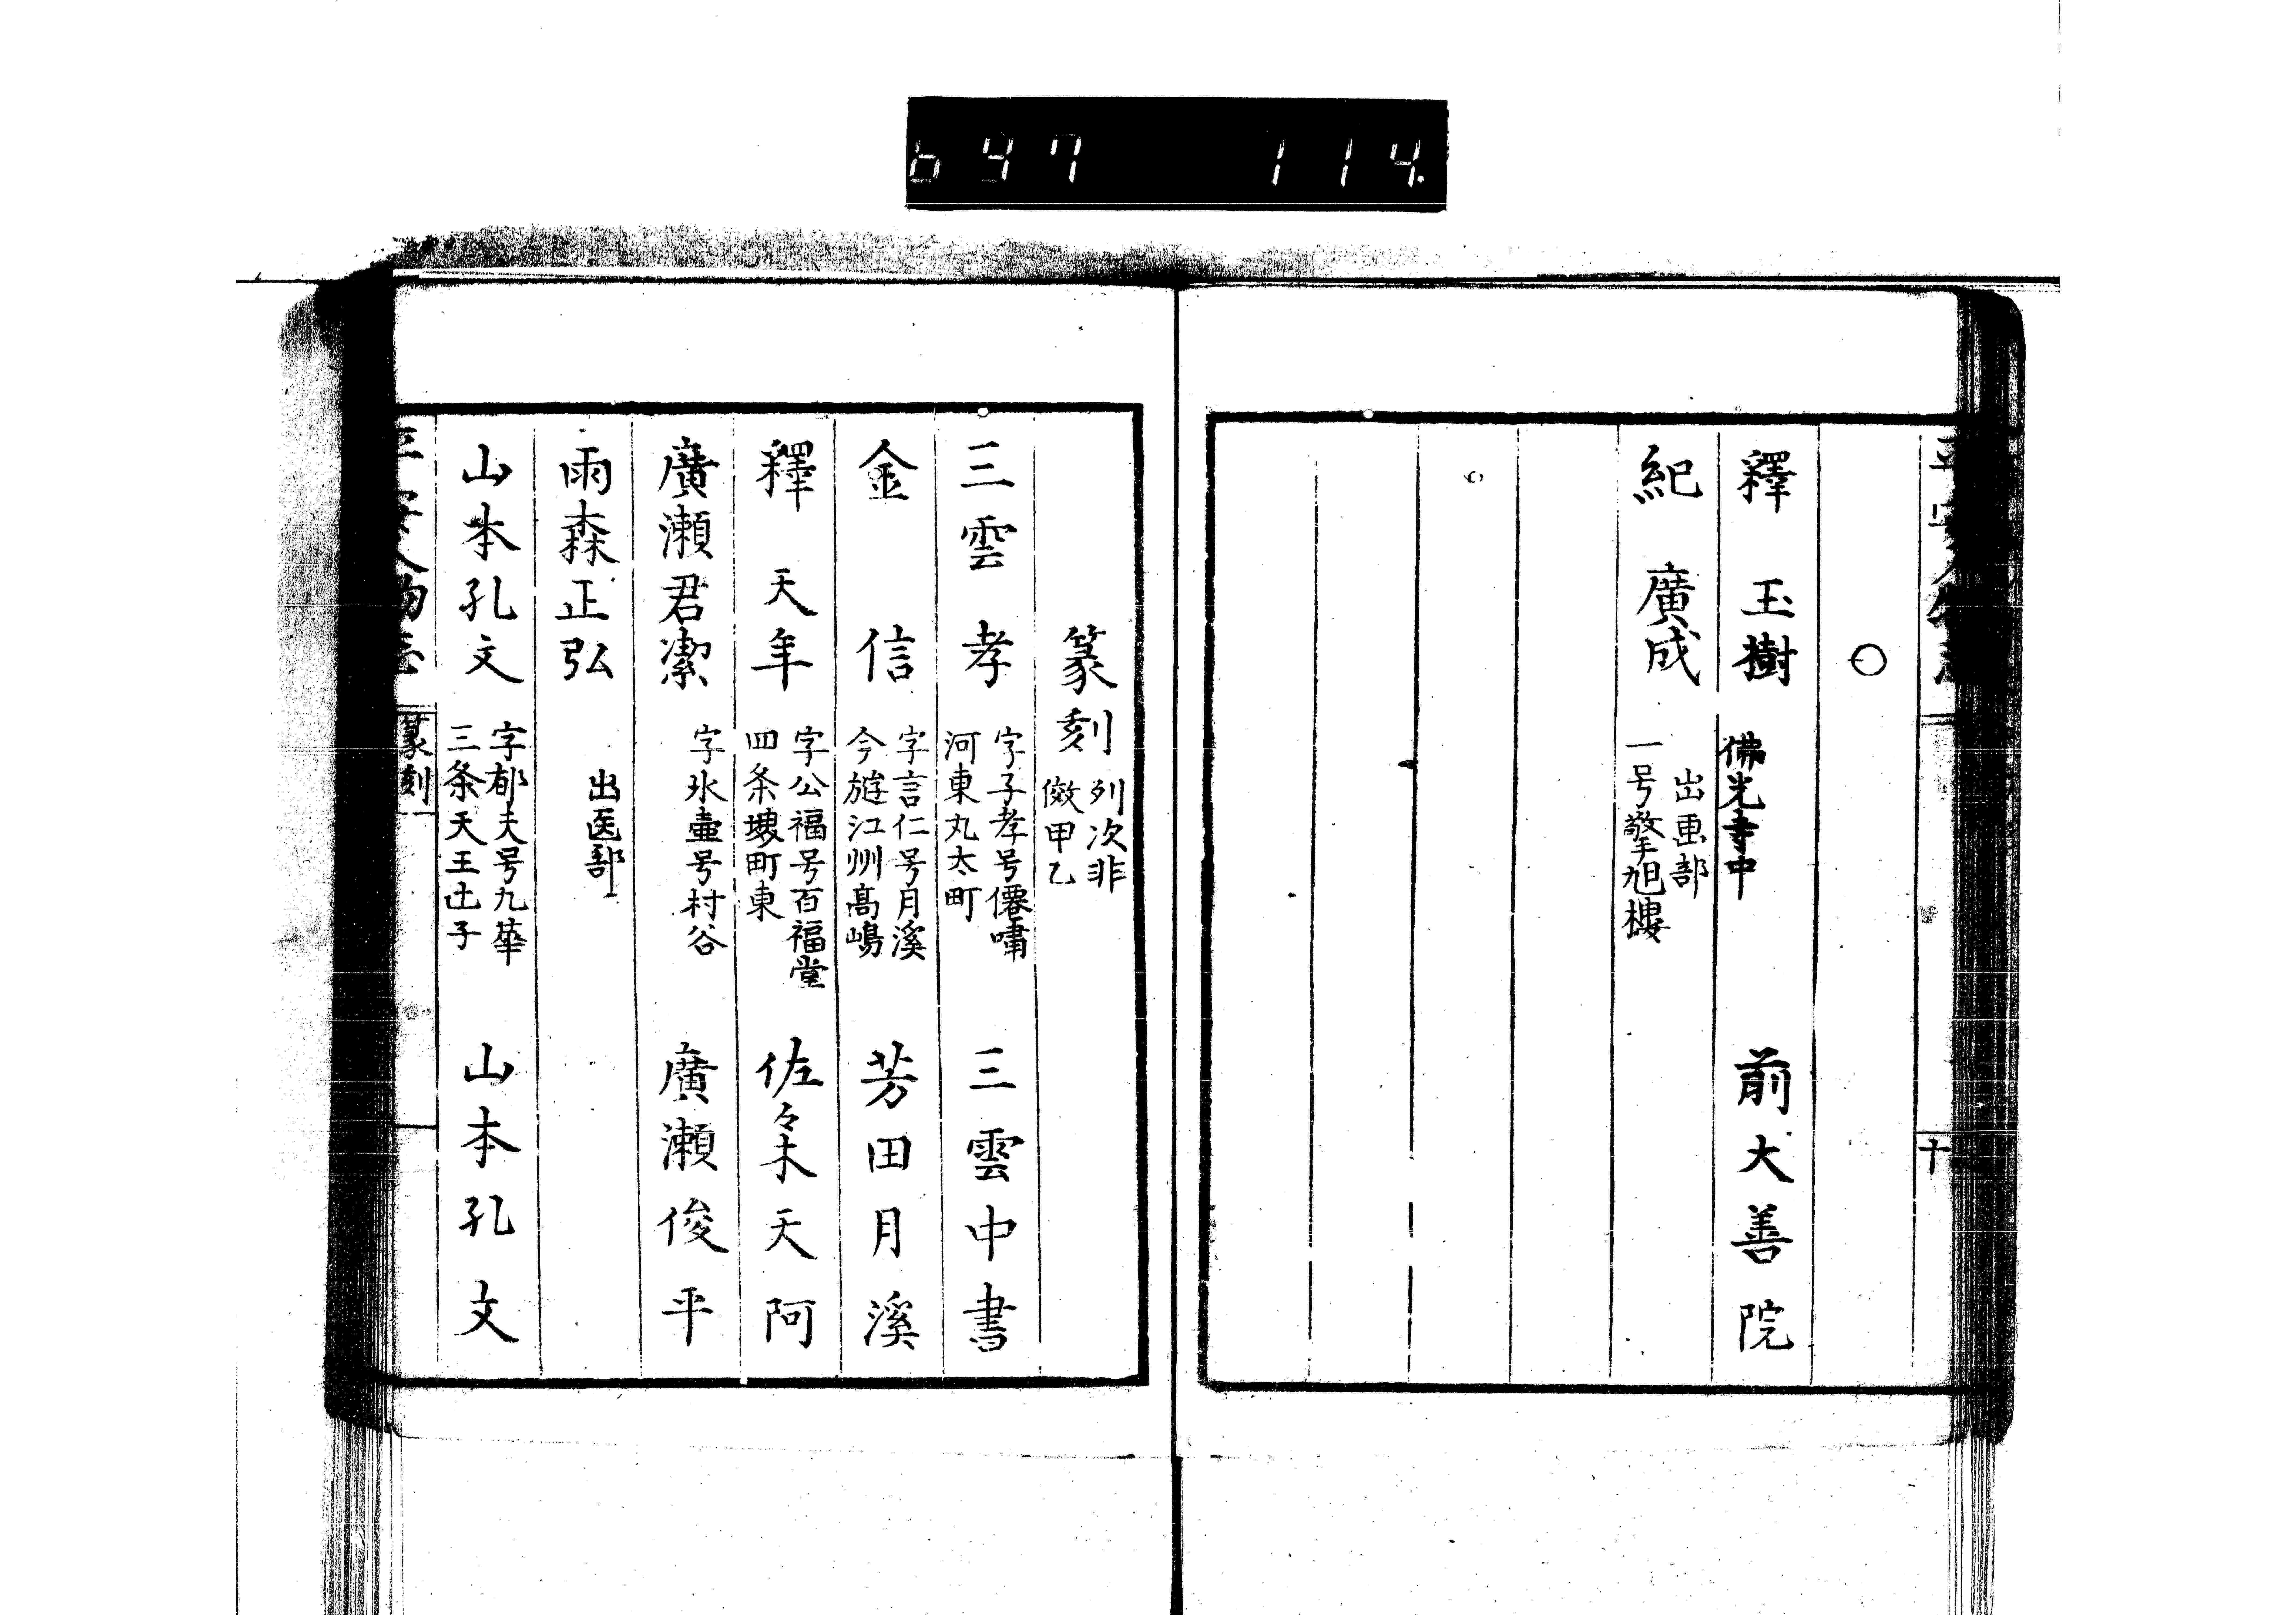 647 114
平安人物志
十
○
釋玉樹 佛光寺中 前大善院
紀廣成 出画部
一号擎旭樓
篆刻 列次非
倣甲乙
三雲孝 字子孝号僊嘯
河東丸太町 三雲中書
金信 字言仁号月溪
今遊江州髙嶋 芳田月溪
釋天年 字公福号百福堂
四条堺町東 佐々木天阿
廣瀬君潔 字氷壷号村谷 廣瀬俊平
雨森正弘 出医部
山本孔文 字郁夫号九華
三条天王出子 山本孔文
平安人物志
篆刻